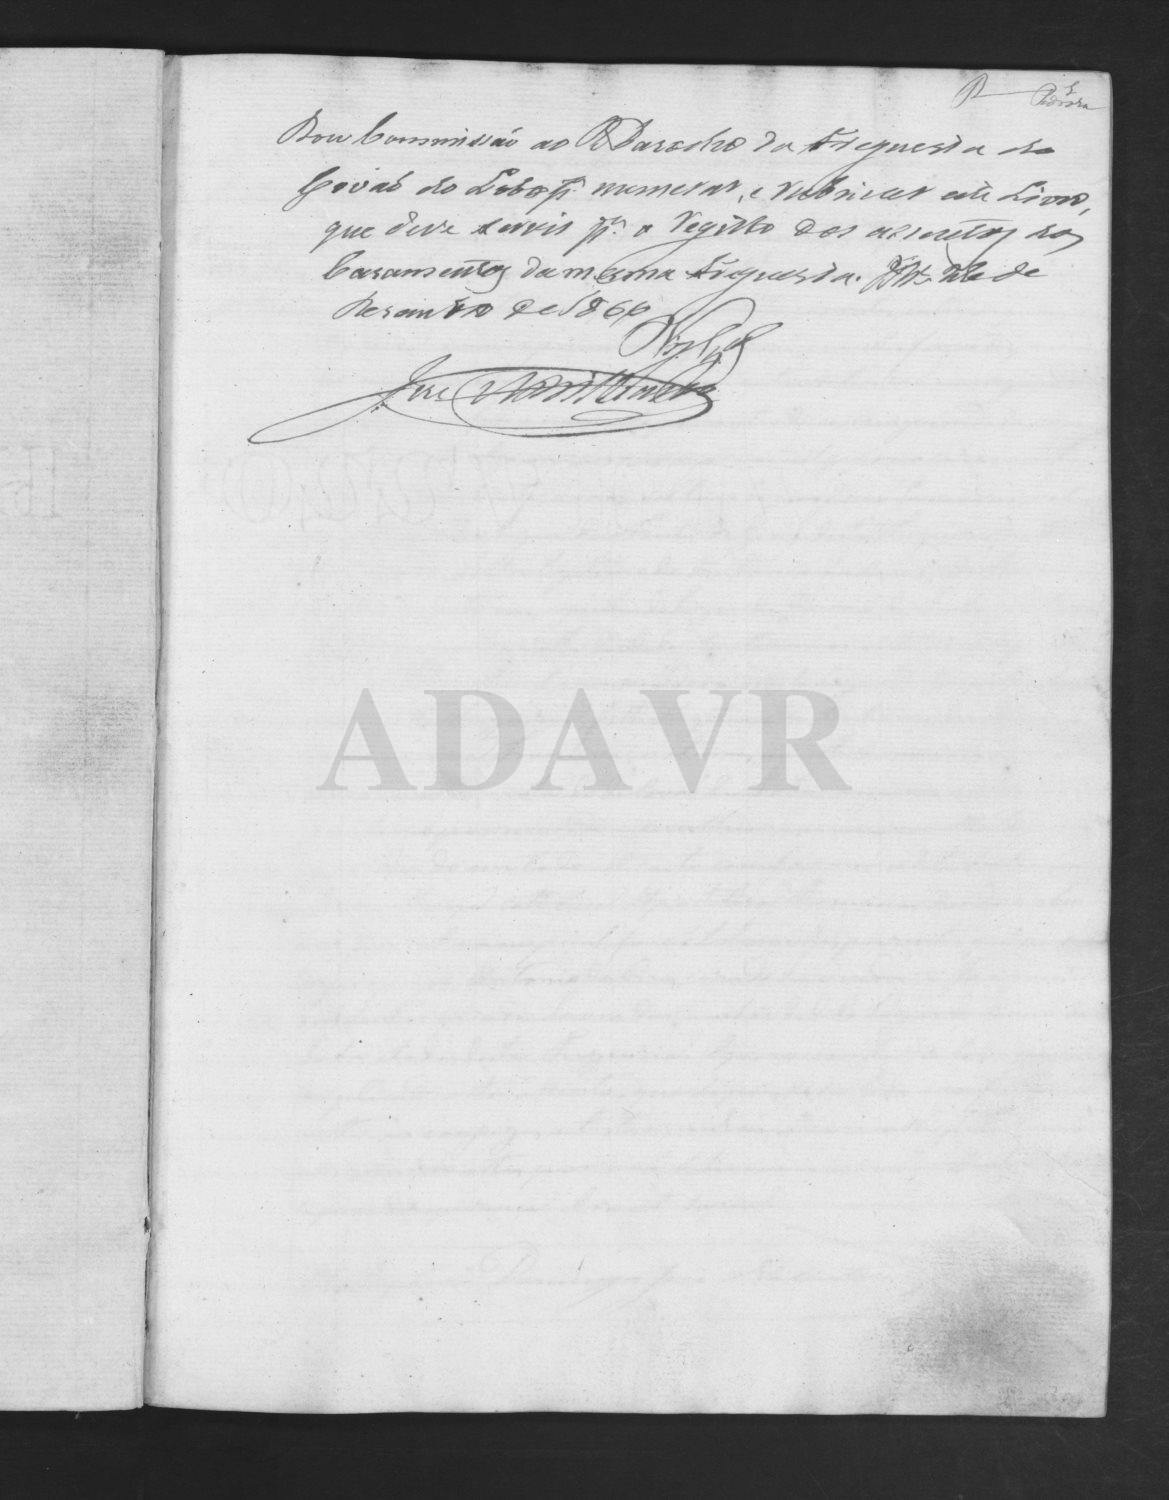 Dou Commissão ao R. Parocho da Freguesia de
Covas do Lobo pª numerar, e rubricar este Livro,
que deve servir pª o Registo dos assentos dos
Casamentos da mesma Freguesia. de
Dezembro de 1860
José
ADAVR